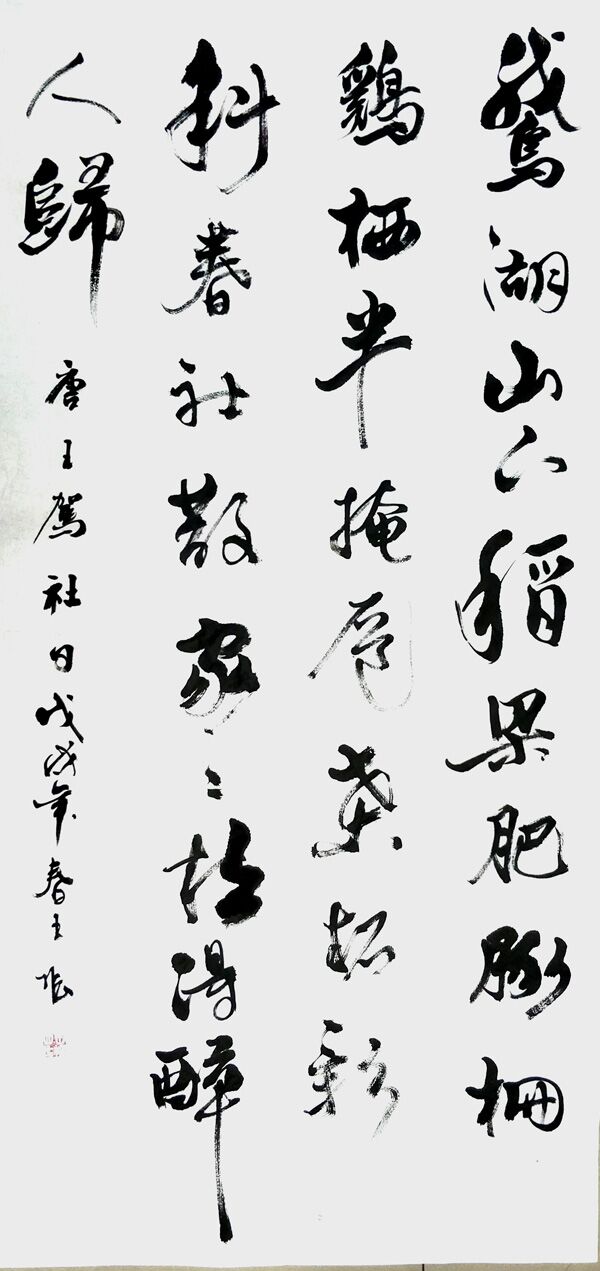 鵞湖山下稻粱肥豚栅
鷄栖半掩扉桑柘影
斜春社散家々扶得醉
人歸
唐王駕社日戊戌年春王